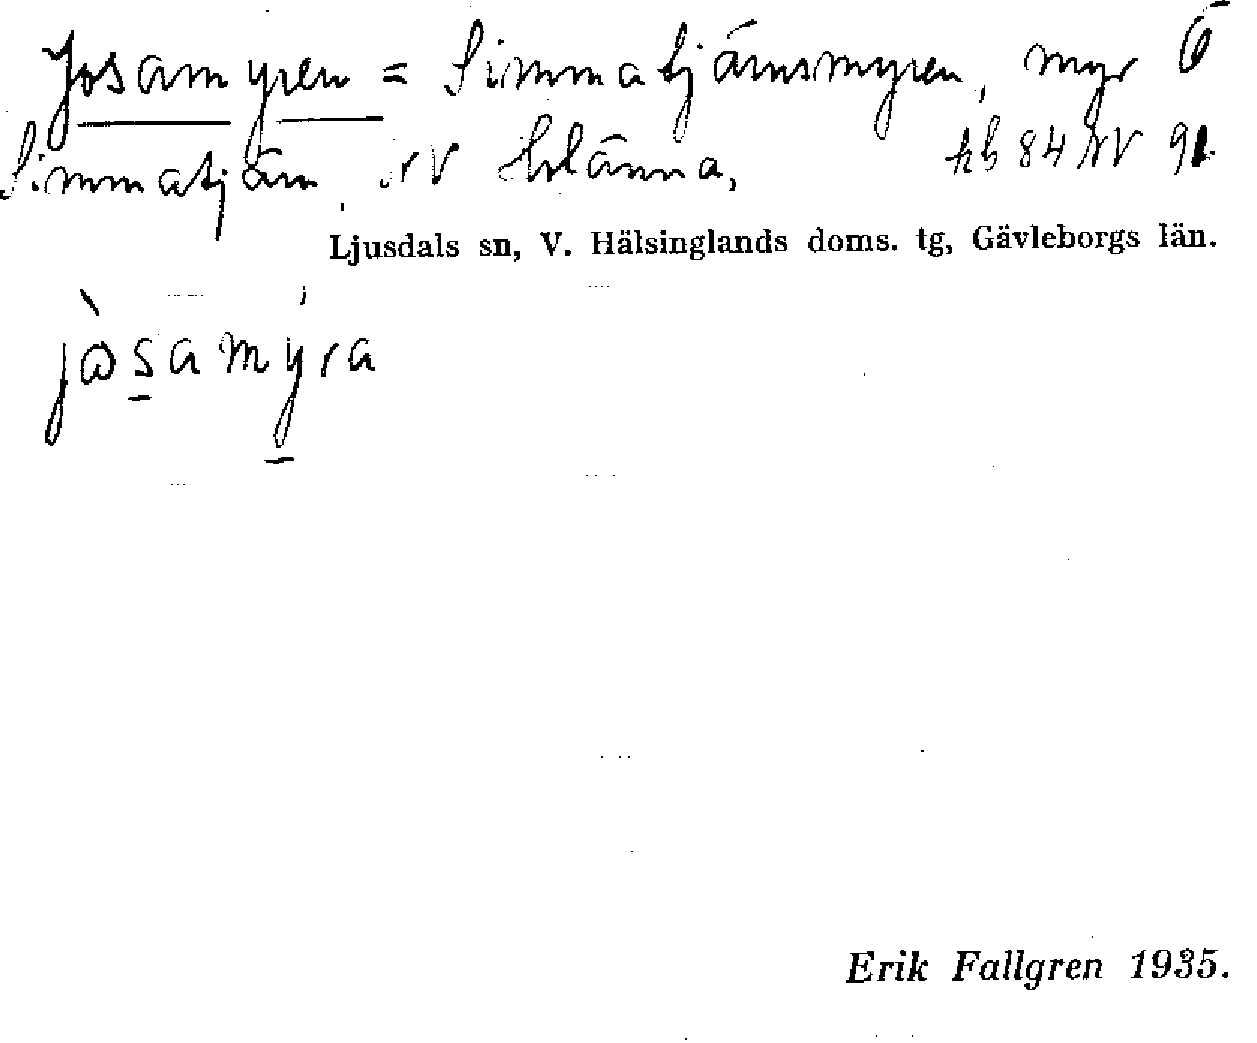 Josamyren = Simmatjärnsmyren, myr Ö
Simmatjärn, NV Hlänna, kb 84 NV 91.
Ljusdals sn, V. Hälsinglands doms. tg, Gävleborgs län.
jòsamýra
Erik Fallgren 1935.